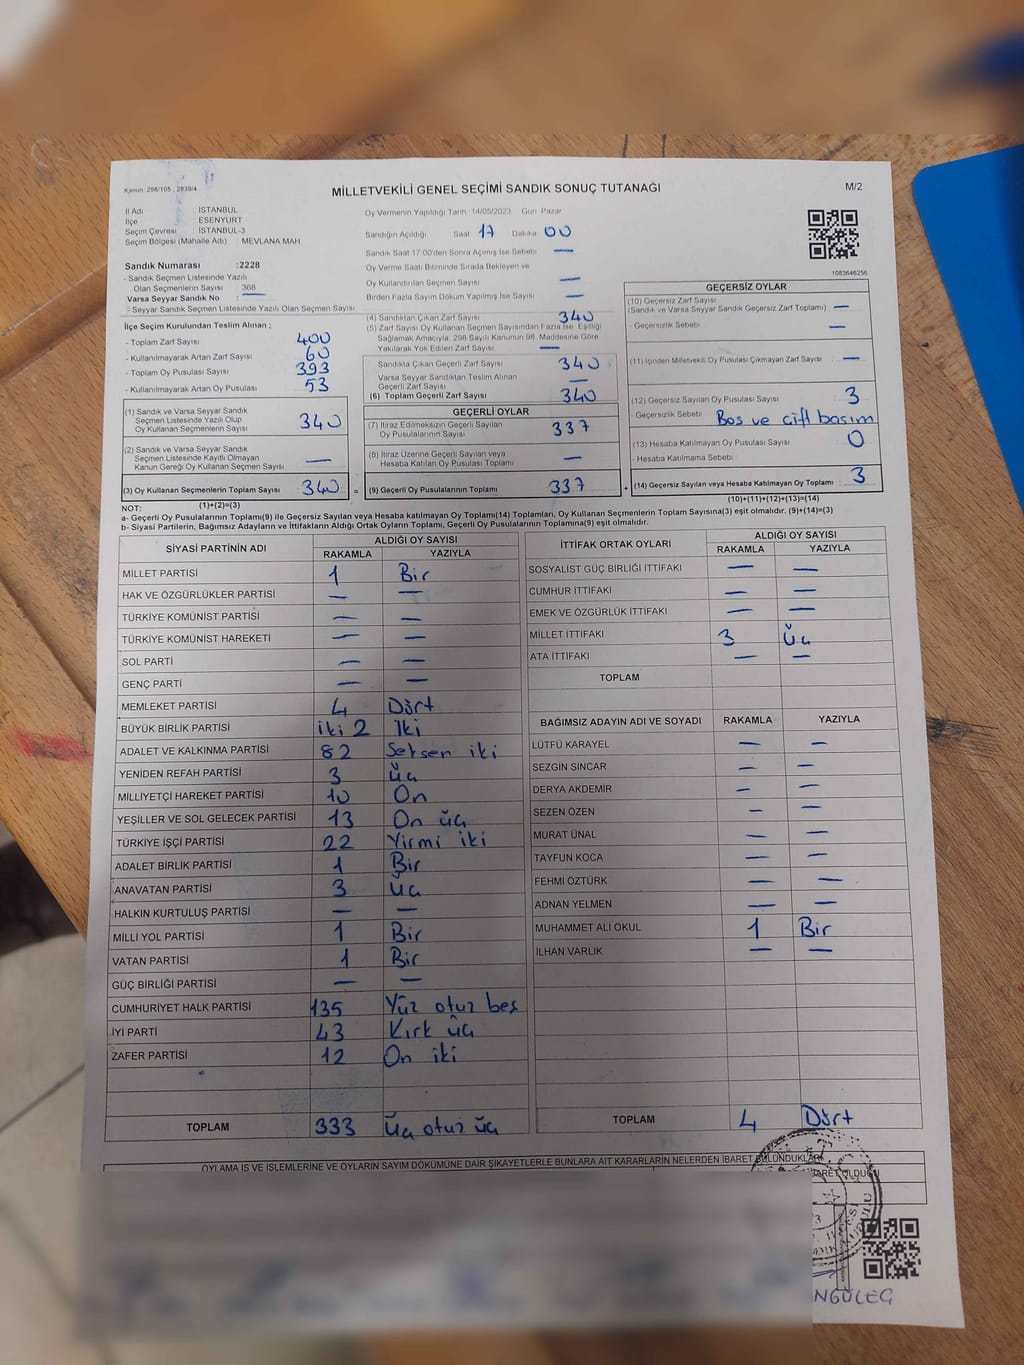 Kanun: 298/105 , 2839/4
MİLLETVEKİLİ GENEL SEÇİMİ SANDIK SONUÇ TUTANAĞI
M/2
İl Adı İSTANBUL
İlçe ESENYURT
Seçim Çevresi İSTANBUL-3
Seçim Bölgesi (Mahalle Adı) MEVLANA MAH
Sandık Numarası :2228
- Sandık Seçmen Listesinde Yazılı
Olan Seçmenlerin Sayısı 368
Varsa Seyyar Sandık No : —
- Seyyar Sandık Seçmen Listesinde Yazılı Olan Seçmen Sayısı
İlçe Seçim Kurulundan Teslim Alınan ;
- Toplam Zarf Sayısı 400
- Kullanılmayarak Artan Zarf Sayısı 60
- Toplam Oy Pusulası Sayısı 393
- Kullanılmayarak Artan Oy Pusulası 53
(1) Sandık ve Varsa Seyyar Sandık
Seçmen Listesinde Yazılı Olup
Oy Kullanan Seçmenlerin Sayısı 340
(2) Sandık ve Varsa Seyyar Sandık
Seçmen Listesinde Kayıtlı Olmayan
Kanun Gereği Oy Kullanan Seçmen Sayısı —
(3) Oy Kullanan Seçmenlerin Toplam Sayısı 340
(1)+(2)=(3)
Oy Vermenin Yapıldığı Tarih 14/05/2023 Gün Pazar
Sandığın Açıldığı Saat 17 Dakika 00
Sandık Saat 17.00'den Sonra Açılmış İse Sebebi —
Oy Verme Saati Bitiminde Sırada Bekleyen ve
Oy Kullandırılan Seçmen Sayısı —
Birden Fazla Sayım Döküm Yapılmış İse Sayısı —
(4) Sandıktan Çıkan Zarf Sayısı 340
(5) Zarf Sayısı Oy Kullanan Seçmen Sayısından Fazla İse, Eşitliği
Sağlamak Amacıyla, 298 Sayılı Kanunun 98. Maddesine Göre
Yakılarak Yok Edilen Zarf Sayısı —
Sandıkta Çıkan Geçerli Zarf Sayısı 340
Varsa Seyyar Sandıktan Teslim Alınan
Geçerli Zarf Sayısı —
(6) Toplam Geçerli Zarf Sayısı 340
GEÇERLİ OYLAR
(7) İtiraz Edilmeksizin Geçerli Sayılan
Oy Pusulalarının Sayısı 337
(8) İtiraz Üzerine Geçerli Sayılan veya
Hesaba Katılan Oy Pusulası Toplamı —
= (9) Geçerli Oy Pusulalarının Toplamı 337
1083646256
GEÇERSİZ OYLAR
(10) Geçersiz Zarf Sayısı
(Sandık ve Varsa Seyyar Sandık Geçersiz Zarf Toplamı) —
- Geçersizlik Sebebi: —
(11) İçinden Milletvekili Oy Pusulası Çıkmayan Zarf Sayısı —
(12) Geçersiz Sayılan Oy Pusulası Sayısı 3
- Geçersizlik Sebebi: Boş ve çift basım
(13) Hesaba Katılmayan Oy Pusulası Sayısı 0
- Hesaba Katılmama Sebebi :
+ (14) Geçersiz Sayılan veya Hesaba Katılmayan Oy Toplamı 3
(10)+(11)+(12)+(13)=(14)
NOT:
a- Geçerli Oy Pusulalarının Toplamı(9) ile Geçersiz Sayılan veya Hesaba Katılmayan Oy Toplamı(14) Toplamları, Oy Kullanan Seçmenlerin Toplam Sayısına(3) eşit olmalıdır. (9)+(14)=(3)
b- Siyasi Partilerin, Bağımsız Adayların ve İttifakların Aldığı Ortak Oyların Toplamı, Geçerli Oy Pusulalarının Toplamına(9) eşit olmalıdır.
SİYASİ PARTİNİN ADI ALDIĞI OY SAYISI
RAKAMLA YAZIYLA
MİLLET PARTİSİ 1 Bir
HAK VE ÖZGÜRLÜKLER PARTİSİ — —
TÜRKİYE KOMÜNİST PARTİSİ — —
TÜRKİYE KOMÜNİST HAREKETİ — —
SOL PARTİ — —
GENÇ PARTİ — —
MEMLEKET PARTİSİ 4 Dört
BÜYÜK BİRLİK PARTİSİ iki 2 İki
ADALET VE KALKINMA PARTİSİ 82 Seksen iki
YENİDEN REFAH PARTİSİ 3 Üç
MİLLİYETÇİ HAREKET PARTİSİ 10 On
YEŞİLLER VE SOL GELECEK PARTİSİ 13 On üç
TÜRKİYE İŞÇİ PARTİSİ 22 Yirmi iki
ADALET BİRLİK PARTİSİ 1 Bir
ANAVATAN PARTİSİ 3 Üç
HALKIN KURTULUŞ PARTİSİ — —
MİLLİ YOL PARTİSİ 1 Bir
VATAN PARTİSİ 1 Bir
GÜÇ BİRLİĞİ PARTİSİ — —
CUMHURİYET HALK PARTİSİ 135 Yüz otuz beş
İYİ PARTİ 43 Kırk üç
ZAFER PARTİSİ 12 On iki
TOPLAM 333 Üç otuz üç
İTTİFAK ORTAK OYLARI ALDIĞI OY SAYISI
RAKAMLA YAZIYLA
SOSYALİST GÜÇ BİRLİĞİ İTTİFAKI — —
CUMHUR İTTİFAKI — —
EMEK VE ÖZGÜRLÜK İTTİFAKI — —
MİLLET İTTİFAKI 3 Üç
ATA İTTİFAKI — —
TOPLAM
BAĞIMSIZ ADAYIN ADI VE SOYADI RAKAMLA YAZIYLA
LÜTFÜ KARAYEL — —
SEZGİN SİNCAR — —
DERYA AKDEMİR — —
SEZEN ÖZEN — —
MURAT ÜNAL — —
TAYFUN KOCA — —
FEHMİ ÖZTÜRK — —
ADNAN YELMEN — —
MUHAMMET ALİ OKUL 1 Bir
İLHAN VARLIK — —
TOPLAM 4 Dört
OYLAMA İŞ VE İŞLEMLERİNE VE OYLARIN SAYIM DÖKÜMÜNE DAİR ŞİKAYETLERLE BUNLARA AİT KARARLARIN NELERDEN İBARET BULUNDUKLARI
NGÜLEÇ